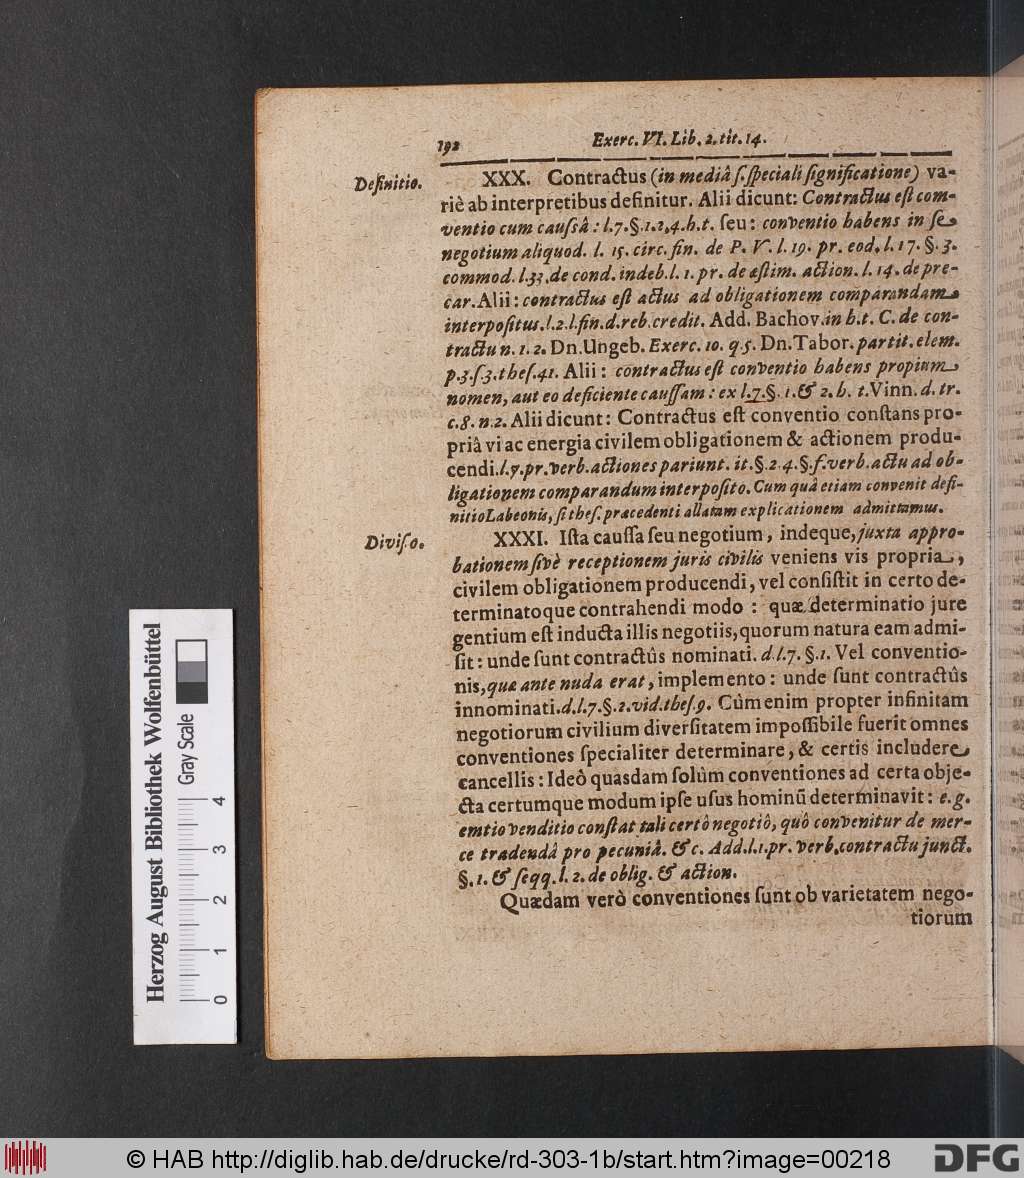 192 Exerc. VI. Lib. 2. tit. 14.
Definitio.
XXX. Contractus (in mediâ ſ. ſpeciali ſignificatione) va-
riè ab interpretibus definitur. Alii dicunt: Contractus eſt con-
ventio cum cauſſâ: l. 7. §. 1. 2, 4. h. t. ſeu: conventio habens in ſe
negotium aliquod. l. 15. circ. fin. de P. V. l. 19. pr. eod. l. 17. §. 3.
commod. l. 33. de cond. indeb. l. 1. pr. de æſtim. action. l. 14. de pre-
car. Alii: contractus eſt actus ad obligationem comparandam
interpoſitus. l. 2. l. fin. d. reb. credit. Add. Bachov. in h. t. C. de con-
tractu n. 1. 2. Dn. Ungeb. Exerc. 10. q. 5. Dn. Tabor. partit. elem.
p. 3. ſ 3. theſ. 41. Alii: contractus eſt conventio habens propium
nomen, aut eo deficiente cauſſam: ex l. 7. §. 1. & 2. h. t. Vinn. d. tr.
c. 8. n. 2. Alii dicunt: Contractus eſt conventio conſtans pro-
priâ vi ac energia civilem obligationem & actionem produ-
cendi. l. 7. pr. verb. actiones pariunt. it. §. 2 4. §. f. verb. actu ad ob-
ligationem comparandum interpoſito. Cum quâ etiam convenit defi-
nitio Labeonis, ſi theſ. præcedenti allatam explicationem admittamus.
Diviſ. o.
XXXI. Iſta cauſſa ſeu negotium, indeque, juxta appro-
bationem ſivè receptionem juris civilis veniens vis propria,
civilem obligationem producendi, vel conſiſtit in certo de-
terminatoque contrahendi modo: quæ determinatio jure
gentium eſt inducta illis negotiis, quorum natura eam admi-
ſit: unde ſunt contractûs nominati. d. l. 7. §. 1. Vel conventio-
nis, quæ ante nuda erat, implemento: unde ſunt contractûs
innominati. d. l. 7. §. 2. vid. theſ. 9. Cùm enim propter infinitam
negotiorum civilium diverſitatem impoſſibile fuerit omnes
conventiones ſpecialiter determinare, & certis includere
cancellis: Ideò quasdam ſolùm conventiones ad certa obje-
cta certumque modum ipſe uſus hominũ determinavit: e. g.
emtio venditio conſtat tali certô negotiô, quô convenitur de mer-
ce tradendâ pro pecuniâ. &c. Add. l. 1. pr. verb. contractu junct.
§. 1. & ſeqq. l. 2. de oblig. & action.
Quædam verò conventiones ſunt ob varietatem nego-
tiorum
Herzog August Bibliothek Wolfenbüttel
Gray Scale
0 1 2 3 4
© HAB http://diglib.hab.de/drucke/rd-303-1b/start.htm?image=00218
DFG